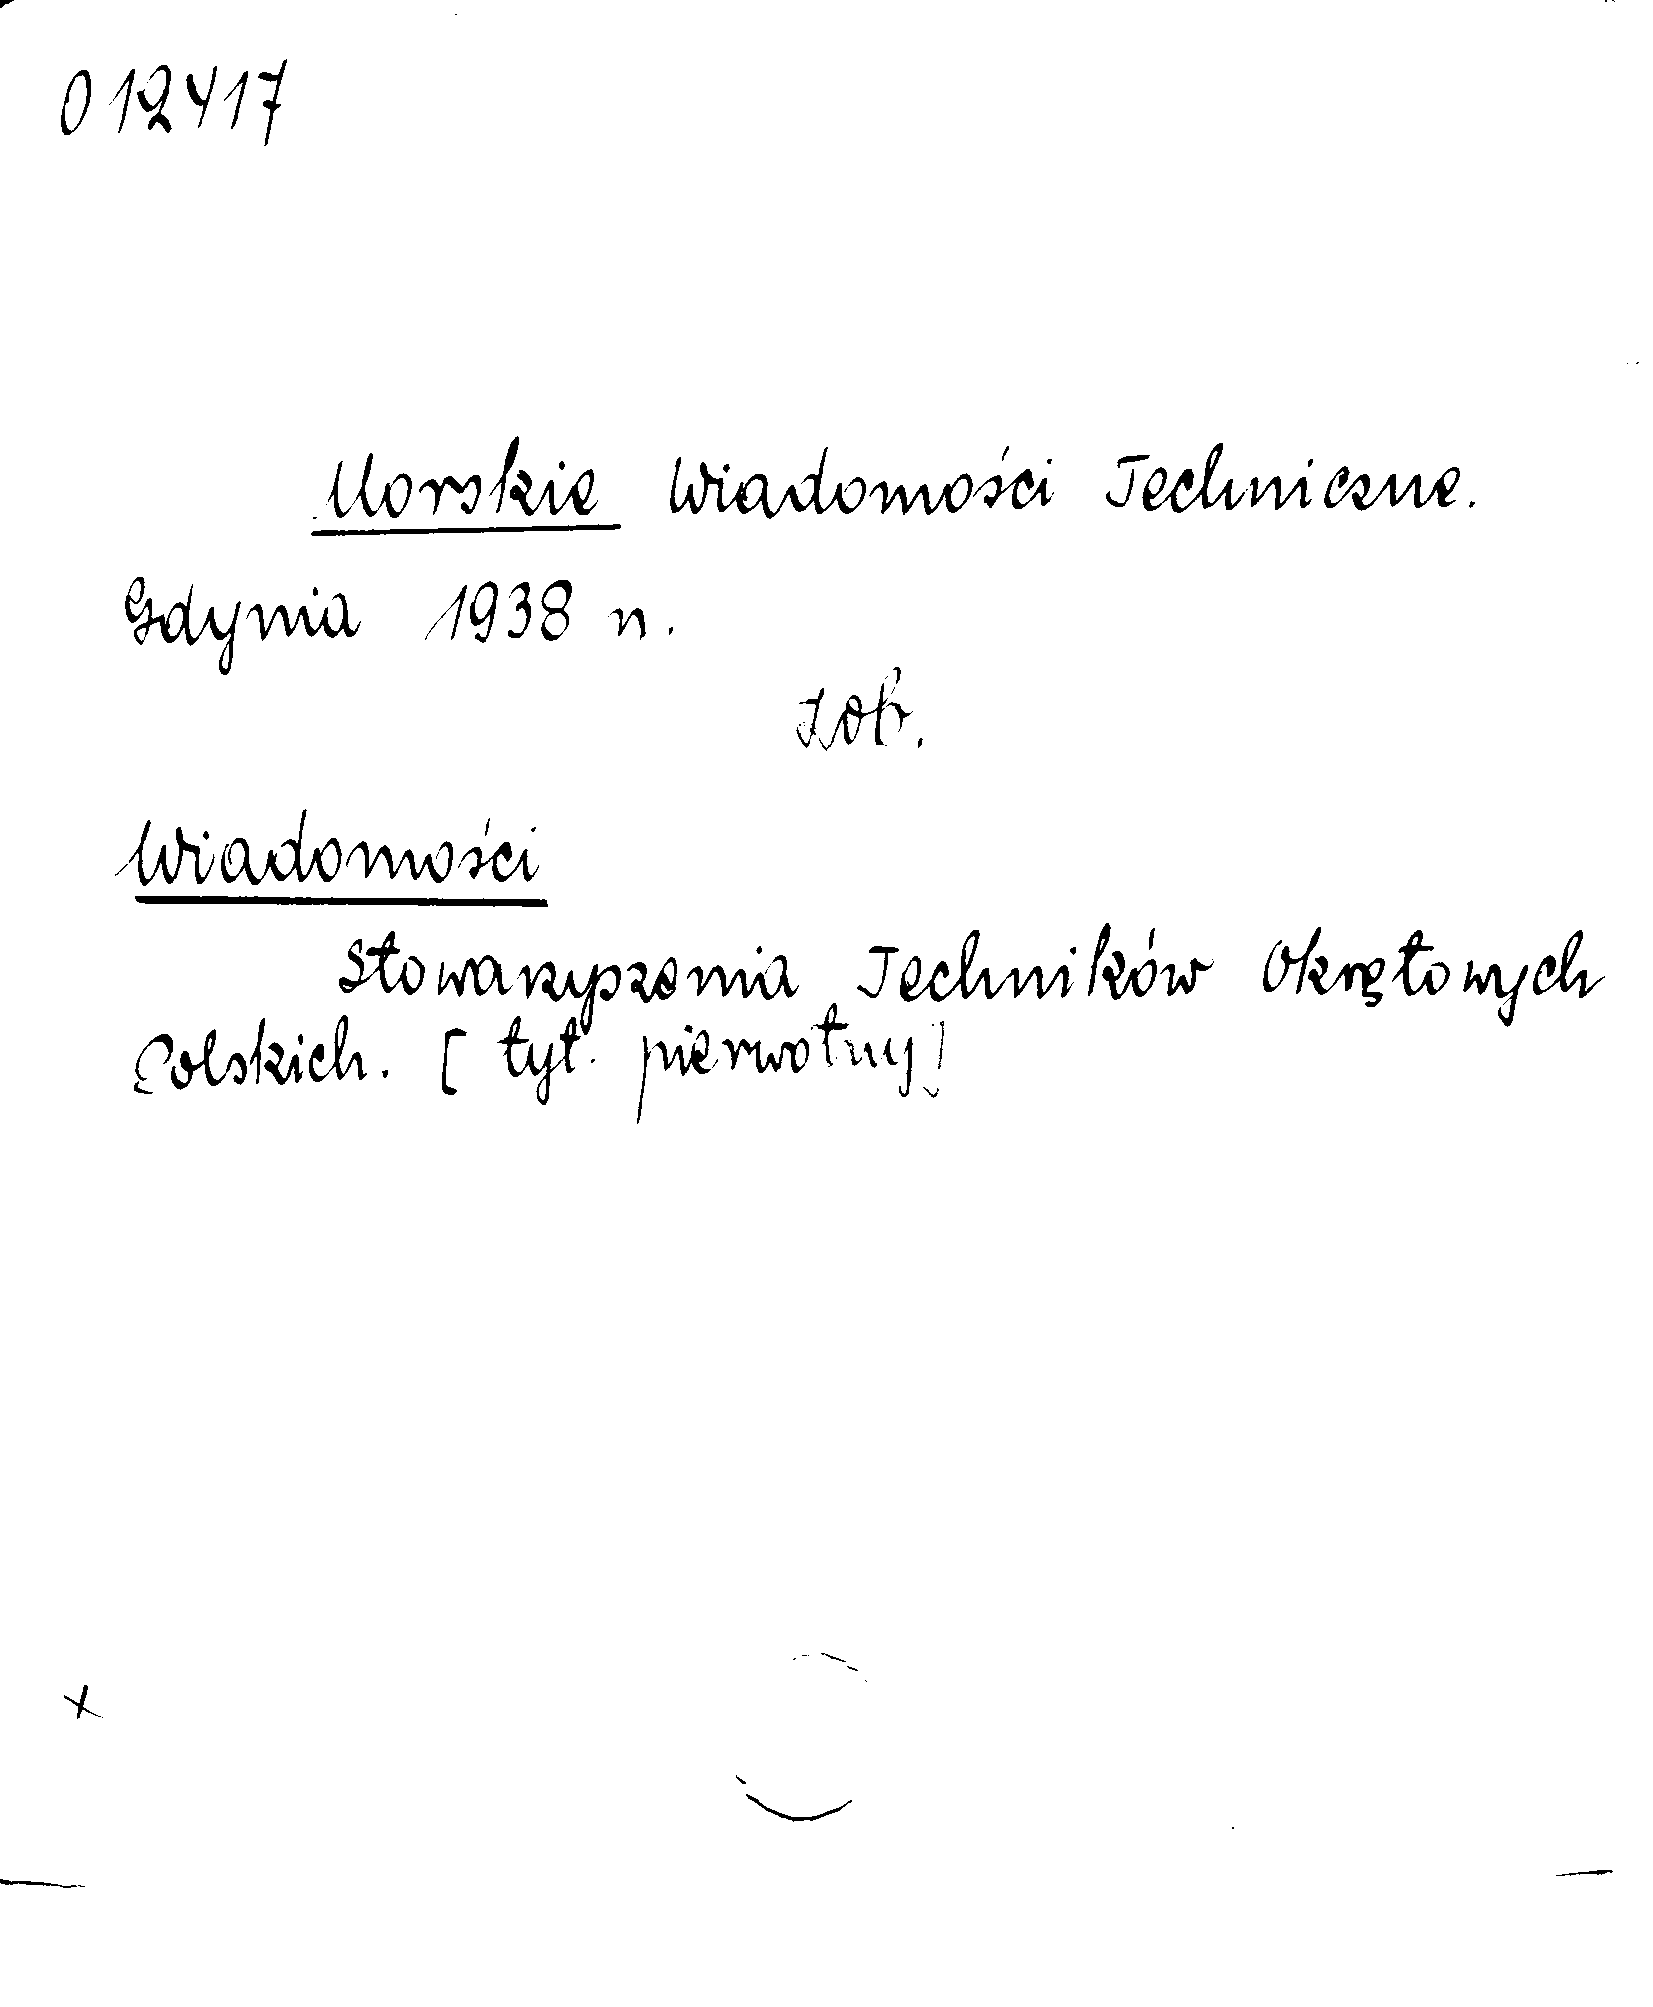 012417
Morskie Wiadomości Techniczne.
Gdynia 1938 n.
zob.
Wiadomości
Stowarzyszenia Techników Okrętowych
Polskich. [tyt. pierwotny]
x